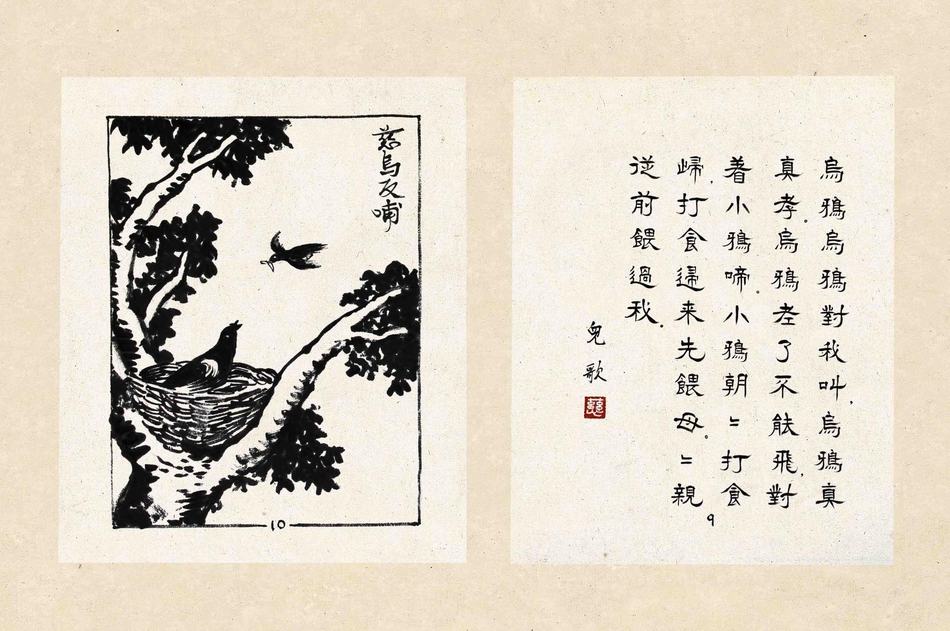 烏鴉烏鴉對我叫，烏鴉真
真孝。烏鴉老了不能飛，對
着小鴉啼。小鴉朝〻打食
歸，打食歸来先餵母。〻親
從前餵過我。
兒歌
9
慈烏反哺
10